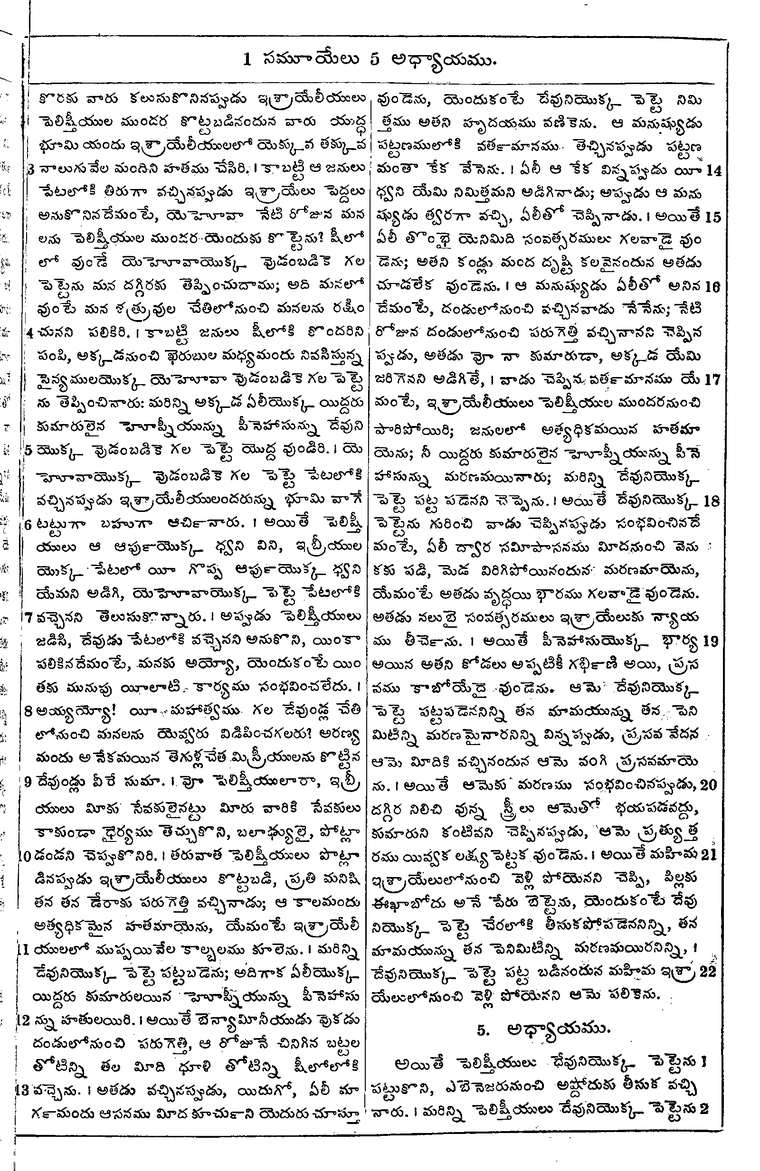 1 సమూయేలు 5 అధ్యాయము.
కొరకు వారు కలుసుకొనినప్పుడు ఇశ్రాయేలీయులు
పెలిష్తీయుల ముందర కొట్టబడినందున వారు యుద్ధ
భూమి యందు ఇశ్రాయేలీయులలో యెక్కువ తక్కువ
3 నాలుగువేల మందిని హతము చేసిరి. । కాబట్టి ఆ జనులు
పేటలోకి తిరుగా వచ్చినప్పుడు ఇశ్రాయేలు పెద్దలు
అనుకొనినదేమంటే, యెహోవా నేటి రోజున మన
లను పెలిష్తీయుల ముందర యెందుకు కొట్టెను? షీలో
లో వుండే యెహోవాయొక్క వుడంబడికె గల
పెట్టెను మన దగ్గిరకు తెప్పించుదాము; అది మనలో
వుంటే మన శత్రువుల చేతిలోనుంచి మనలను రక్షిం
4 చునని పలికిరి. । కాబట్టి జనులు షీలోకి కొందరిని
పంపి, అక్కడనుంచి ఖెరుబుల మధ్యమందు నివసిస్తున్న
సైన్యములయొక్క యెహోవా వుడంబడికె గల పెట్టె
ను తెప్పించినారు: మరిన్ని అక్కడ ఏలీయొక్క యిద్దరు
కుమారులైన హొఫ్నీయున్ను పీనెహాసున్ను దేవుని
5 యొక్క వుడంబడికె గల పెట్టె యొద్ద వుండిరి. । యె
హోవాయొక్క వుడంబడికె గల పెట్టె పేటలోకి
వచ్చినప్పుడు ఇశ్రాయేలీయులందరున్ను భూమి వాగే
6 టట్టుగా బహుగా ఆర్చినారు. । అయితే పెలిష్తీ
యులు ఆ ఆర్పుయొక్క ధ్వని విని, ఇబ్రీయుల
యొక్క పేటలో యీ గొప్ప ఆర్పుయొక్క ధ్వని
యేమని అడిగి, యెహోవాయొక్క పెట్టె పేటలోకి
7 వచ్చెనని తెలుసుకొన్నారు. । అప్పుడు పెలిష్తీయులు
జడిసి, దేవుడు పేటలోకి వచ్చెనని అనుకొని, యింకా
పలికినదేమంటే, మనకు అయ్యో, యెందుకంటే యిం
తకు మునుపు యీలాటి కార్యము సంభవించలేదు. ।
8 అయ్యయ్యో! యీ మహాత్వము గల దేవుండ్ల చేతి
లోనుంచి మనలను యెవ్వరు విడిపించగలరు? అరణ్య
మందు అనేకమయిన తెగుళ్లచేత మిస్రీయులను కొట్టిన
9 దేవుండ్లు వీరే సుమా. । వో పెలిష్తీయులారా, ఇబ్రీ
యులు మీకు సేవకులైనట్టు మీరు వారికి సేవకులు
కాకుండా ధైర్యము తెచ్చుకొని, బలాఢ్యులై, పోట్లా
10 డండని చెప్పుకొనిరి. । తరువాత పెలిష్తీయులు పొట్లా
డినప్పుడు ఇశ్రాయేలీయులు కొట్టబడి, ప్రతి మనిషి
తన తన డేరాకు పరుగెత్తి వచ్చినాడు; ఆ కాలమందు
అత్యధికమైన హతమాయెను, యేమంటే ఇశ్రాయేలీ
11 యులలో ముప్పయివేల కాల్బలము కూలెను. । మరిన్ని
దేవునియొక్క పెట్టె పట్టబడెను; అదిగాక ఏలీయొక్క
యిద్దరు కుమారులయిన హొఫ్నీయున్ను పీనెహాసు
12 న్ను హతులయిరి. । అయితే బెన్యామీనీయుడు వుకడు
దండులోనుంచి పరుగెత్తి, ఆ రోజునే చినిగిన బట్టల
తోటిన్ని తల మీది ధూళి తోటిన్ని షీలోలోకి
13 వచ్చెను. । అతడు వచ్చినప్పుడు, యిదుగో, ఏలీ మా
ర్గమందు ఆసనము మీద కూర్చుని యెదురు చూస్తూ
వుండెను, యెందుకంటే దేవునియొక్క పెట్టె నిమి
త్తము అతని హృదయము వణికెను. ఆ మనుష్యుడు
పట్టణములోకి వర్తమానము తెచ్చినప్పుడు పట్టణ
మంతా కేక వేసెను. । ఏలీ ఆ కేక విన్నప్పుడు యీ 14
ధ్వని యేమి నిమిత్తమని అడిగినాడు; అప్పుడు ఆ మను
ష్యుడు త్వరగా వచ్చి, ఏలీతో చెప్పినాడు. । అయితే 15
ఏలీ తొంభై యెనిమిది సంవత్సరములు గలవాడై వుం
డెను; అతని కండ్లు మంద దృష్టి కలవైనందున అతడు
చూడలేక వుండెను. । ఆ మనుష్యుడు ఏలీతో అనిన 16
దేమంటే, దండులోనుంచి వచ్చినవాడు నేనేను; నేటి
రోజున దండులోనుంచి పరుగెత్తి వచ్చినానని చెప్పిన
ప్పుడు, అతడు వో నా కుమారుడా, అక్కడ యేమి
జరిగెనని అడిగితే, । వాడు చెప్పిన వర్తమానము యే 17
మంటే, ఇశ్రాయేలీయులు పెలిష్తీయుల ముందరనుంచి
పారిపోయిరి; జనులలో అత్యధికమయిన హతమా
యెను; నీ యిద్దరు కుమారులైన హొఫ్నీయున్ను పీనె
హాసున్ను మరణమయినారు; మరిన్ని దేవునియొక్క
పెట్టె పట్ట పడెనని చెప్పెను. । అయితే దేవునియొక్క 18
పెట్టెను గురించి వాడు చెప్పినప్పుడు సంభవించినదే
మంటే, ఏలీ ద్వార సమీపాసనము మీదనుంచి వెను
కకు పడి, మెడ విరిగిపోయినందున మరణమాయెను,
యేమంటే అతడు వృద్ధుయి భారము గలవాడై వుండెను.
అతడు నలుభై సంవత్సరములు ఇశ్రాయేలుకు న్యాయ
ము తీర్చెను. । అయితే పీనెహాసుయొక్క భార్య 19
అయిన అతని కోడలు అప్పటికీ గర్భిణి అయి, ప్రస
వము కాబోయేదై వుండెను. ఆమె దేవునియొక్క
పెట్టె పట్టపడెననిన్ని తన మామయున్ను తన పెని
మిటిన్ని మరణమైనారనిన్ని విన్నప్పుడు, ప్రసవ వేదన
ఆమె మీదికి వచ్చినందున ఆమె వంగి ప్రసవమాయె
ను. । అయితే ఆమెకు మరణము సంభవించినప్పుడు, 20
దగ్గిర నిలిచి వున్న స్త్రీలు ఆమెతో భయపడవద్దు,
కుమారుని కంటివని చెప్పినప్పుడు, ఆమె ప్రత్యుత్త
రము యివ్వక లక్ష్య పెట్టక వుండెను. । అయితే మహిమ 21
ఇశ్రాయేలులోనుంచి వెళ్లి పోయెనని చెప్పి, పిల్లకు
ఈఖాబోదు అనే పేరు బెట్టెను, యెందుకంటే దేవు
నియొక్క పెట్టె చేరలోకి తీసుకపోపడెననిన్ని, తన
మామయున్ను తన పెనిమిటిన్ని మరణమయిరనిన్ని, ।
దేవునియొక్క పెట్టె పట్ట బడినందున మహిమ ఇశ్రా 22
యేలులోనుంచి వెళ్లి పోయెనని ఆమె పలికెను.
5. అధ్యాయము.
అయితే పెలిష్తీయులు ధేవునియొక్క పెట్టెను 1
పట్టుకొని, ఎబెనెజరునుంచి అష్దోదుకు తీసుక వచ్చి
నారు. । మరిన్ని పెలిష్తీయులు దేవునియొక్క పెట్టెను 2